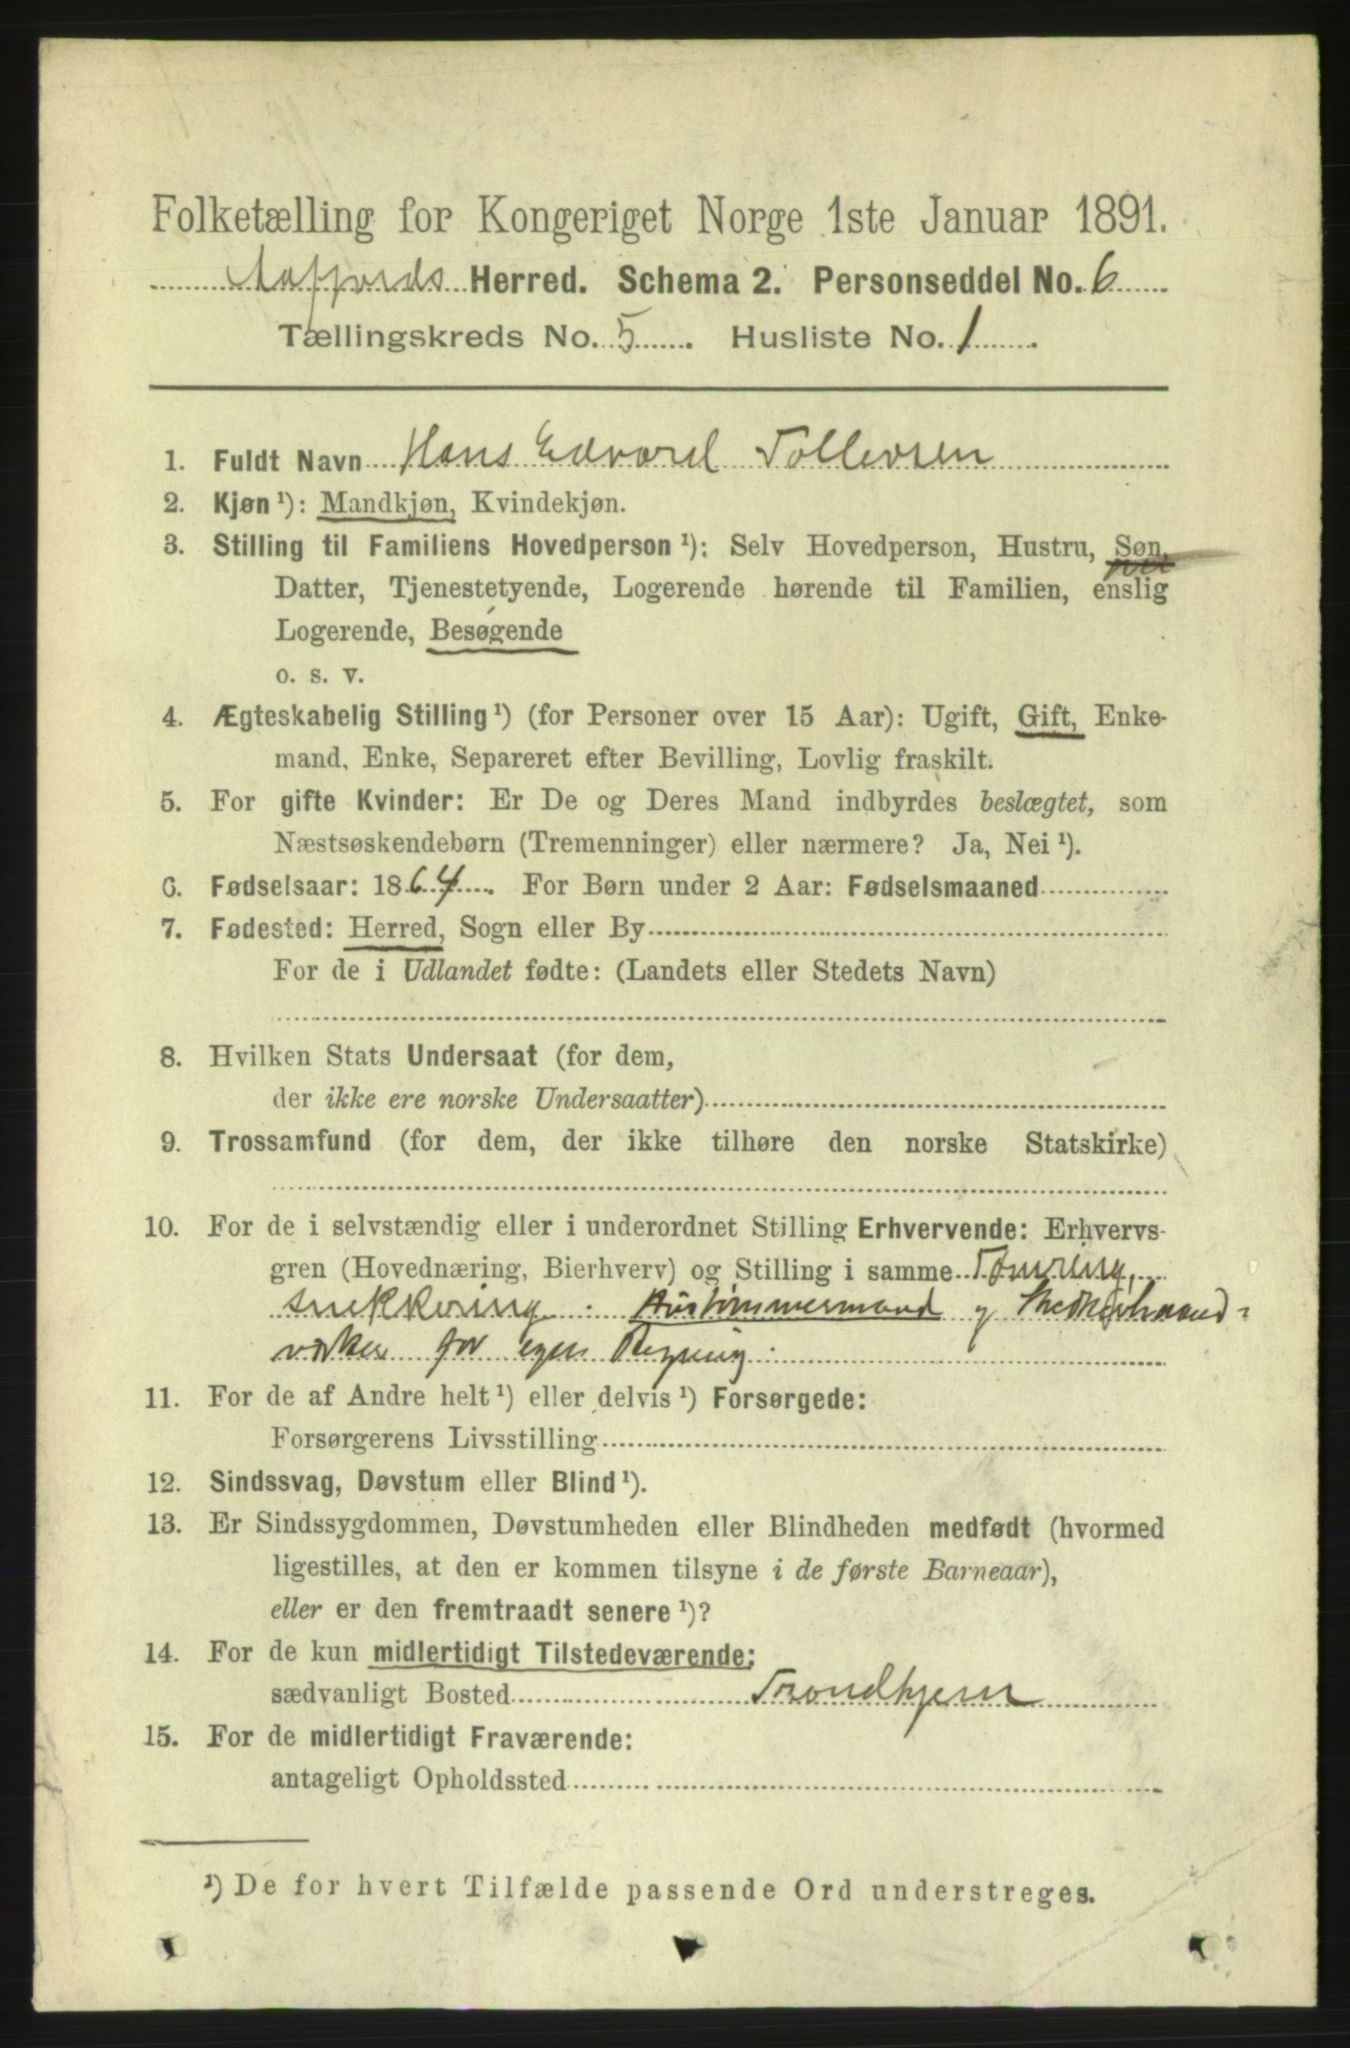 Folketælling for Kongeriget Norge 1ste Januar 1891.
Aafjords Herred. Schema 2. Personseddel No. 6
Tællingskreds No. 5 . Husliste No. 1 .
1. Fuldt Navn Hans Edvard Tollevsen
2. Kjøn ¹): Mandkjøn, Kvindekjøn.
3. Stilling til Familiens Hovedperson ¹): Selv Hovedperson, Hustru, Søn,
Datter, Tjenestetyende, Logerende hørende til Familien, enslig
Logerende, Besøgende
o. s. v.
4. Ægteskabelig Stilling ¹) (for Personer over 15 Aar): Ugift, Gift, Enke-
mand, Enke, Separeret efter Bevilling, Lovlig fraskilt.
5. For gifte Kvinder: Er De og Deres Mand indbyrdes beslægtet, som
Næstsøskendebørn (Tremenninger) eller nærmere? Ja, Nei ¹).
6. Fødselsaar: 1864. For Børn under 2 Aar: Fødselsmaaned
7. Fødested: Herred, Sogn eller By
For de i Udlandet fødte: (Landets eller Stedets Navn)
8. Hvilken Stats Undersaat (for dem,
der ikke ere norske Undersaatter)
9. Trossamfund (for dem, der ikke tilhøre den norske Statskirke)
10. For de i selvstændig eller i underordnet Stilling Erhvervende: Erhvervs-
gren (Hovednæring, Bierhverv) og Stilling i samme Tømring,
snekkering. Hustømmermand og
for egen Regning.
11. For de af Andre helt ¹) eller delvis ¹) Forsørgede:
Forsørgerens Livsstilling
12. Sindssvag, Døvstum eller Blind ¹).
13. Er Sindssygdommen, Døvstumheden eller Blindheden medfødt (hvormed
ligestilles, at den er kommen tilsyne i de første Barneaar),
eller er den fremtraadt senere ¹)?
14. For de kun midlertidigt Tilstedeværende:
sædvanligt Bosted Trondhjem
15. For de midlertidigt Fraværende:
antageligt Opholdssted
¹) De for hvert Tilfælde passende Ord understreges.